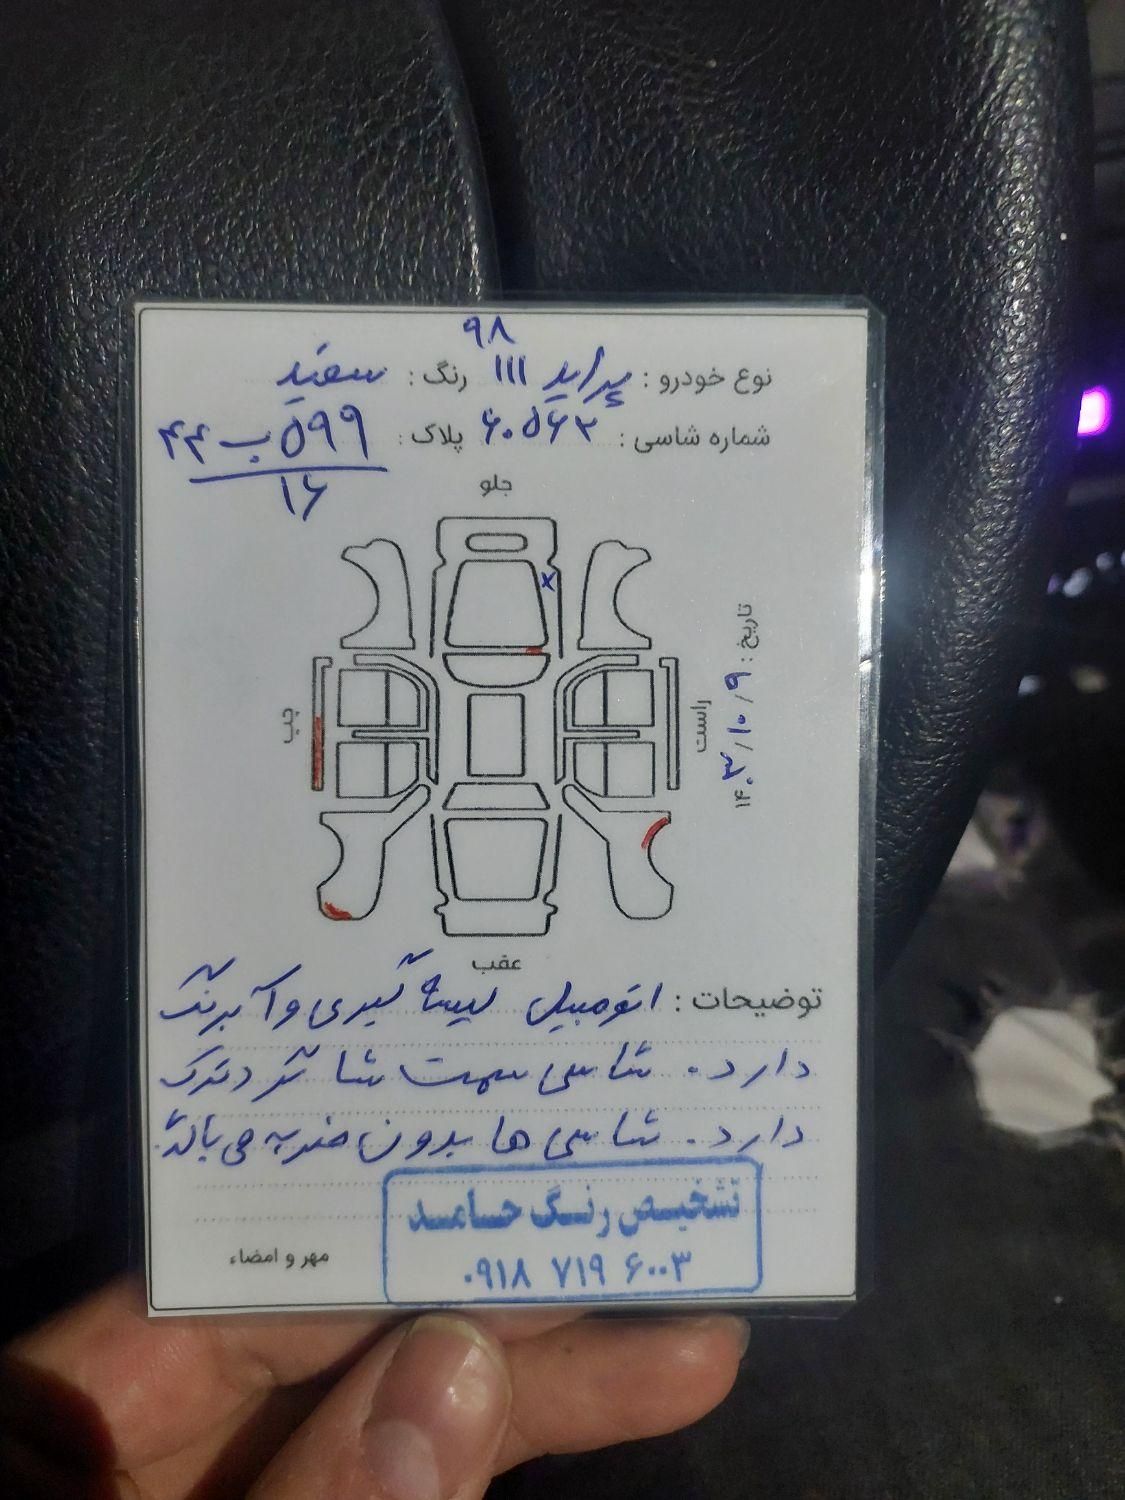 ۹۸
نوع خودرو : پراید ۱۱۱ رنگ : سفید
شماره شاسی : ۶۰۵۶۲ پلاک : ۵۹۹ ب ۴۴
۱۶
جلو
چپ
راست
تاریخ : ۱۴۰۳/۱۰/۹
عقب
توضیحات : اتومبیل لیسه گیری و آبرنگ
دارد . شاسی سمت شاگرد ترک
دارد . شاسی ها بدون ضربه می باشد
تشخیص رنگ حامد
۰۹۱۸ ۷۱۹ ۶۰۰۳
مهر و امضاء